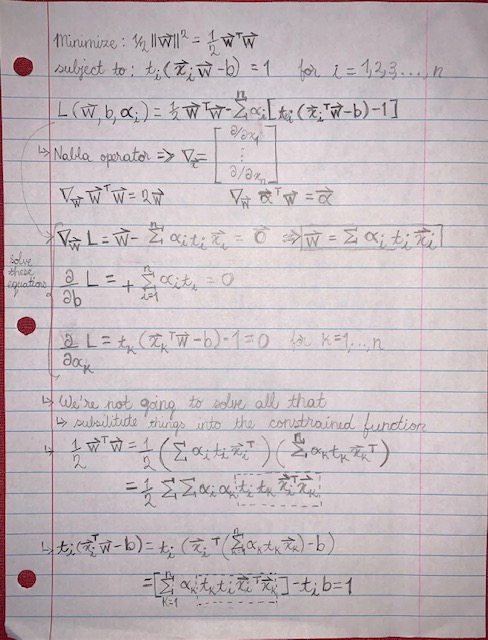 Minimize: 1/2 ||w⃗||² = 1/2 w⃗ᵀw⃗
subject to: tᵢ(x⃗ᵢw⃗-b) = 1 for i = 1,2,3...,n
L(w⃗, b, αᵢ) = 1/2 w⃗ᵀw⃗ - Σⁿ αᵢ[tᵢ(x⃗ᵢᵀw⃗-b)-1]
↳ Nabla operator => ∇_x⃗ = [∂/∂x₁ ⋮ ∂/∂xₙ]
∇_w⃗ w⃗ᵀw⃗ = 2w⃗ ∇_w⃗ α⃗ᵀw⃗ = α⃗
solve these equations
∇_w⃗ L = w⃗ - Σⁿ αᵢtᵢx⃗ᵢ = 0⃗ => w⃗ = Σ αᵢtᵢx⃗ᵢ
∂/∂b L = + Σⁿᵢ₌₁ αᵢtᵢ = 0
∂/∂αₖ L = tₖ(x⃗ₖᵀw⃗-b)-1=0 for k=1,...,n
↳ We're not going to solve all that
↳ subsititute things into the constrained function
↳ 1/2 w⃗ᵀw⃗ = 1/2 (Σ αᵢtᵢx⃗ᵢᵀ)(Σⁿ αₖtₖx⃗ₖᵀ)
= 1/2 Σ Σ αᵢαₖ tᵢtₖ x⃗ᵢᵀx⃗ₖ
↳ tᵢ(x⃗ᵢᵀw⃗-b) = tᵢ(x⃗ᵢᵀ(Σⁿₖ₌₁ αₖtₖx⃗ₖ)-b)
= [Σⁿₖ₌₁ αₖtₖtᵢx⃗ᵢᵀx⃗ₖ] - tᵢb = 1